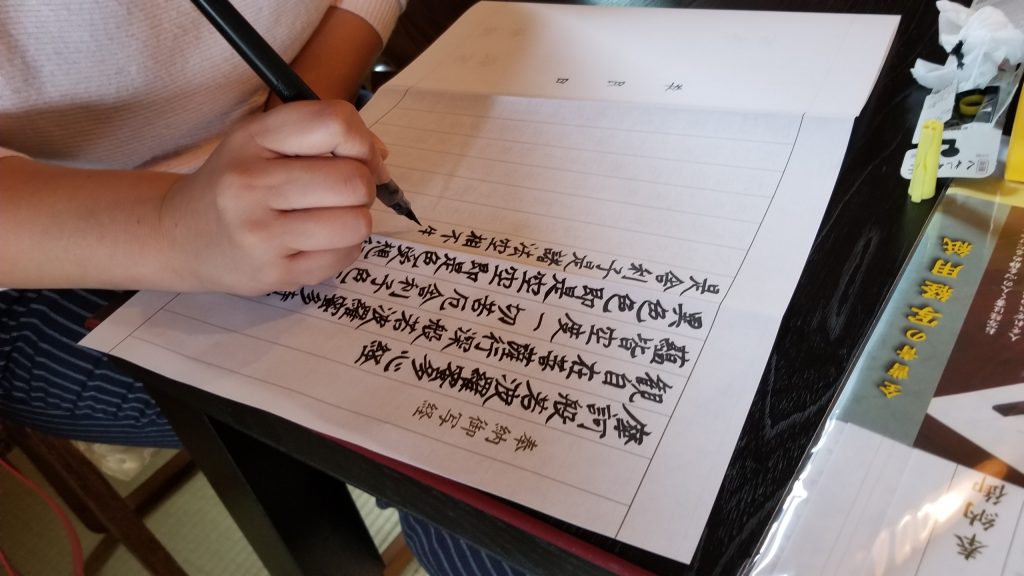 奉納御写経
摩訶般若波羅蜜多心経
観自在菩薩行深般若波羅蜜多
蘊皆空度一切苦厄舎利子色
異色色即是空空即是色受想
是舎利子是諸法空相不
年 月 日
の写経用紙
奉納御